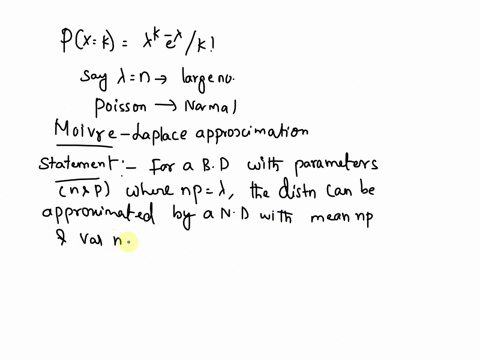 P(X=k) = λ^k e^-λ / k!
Say λ=n → large no.
Poisson → Normal
Moivre-Laplace approximation
Statement:- For a B.D with parameters
(n & p) where np=λ, the distn can be
approximated by a N.D with mean np
& Var n.